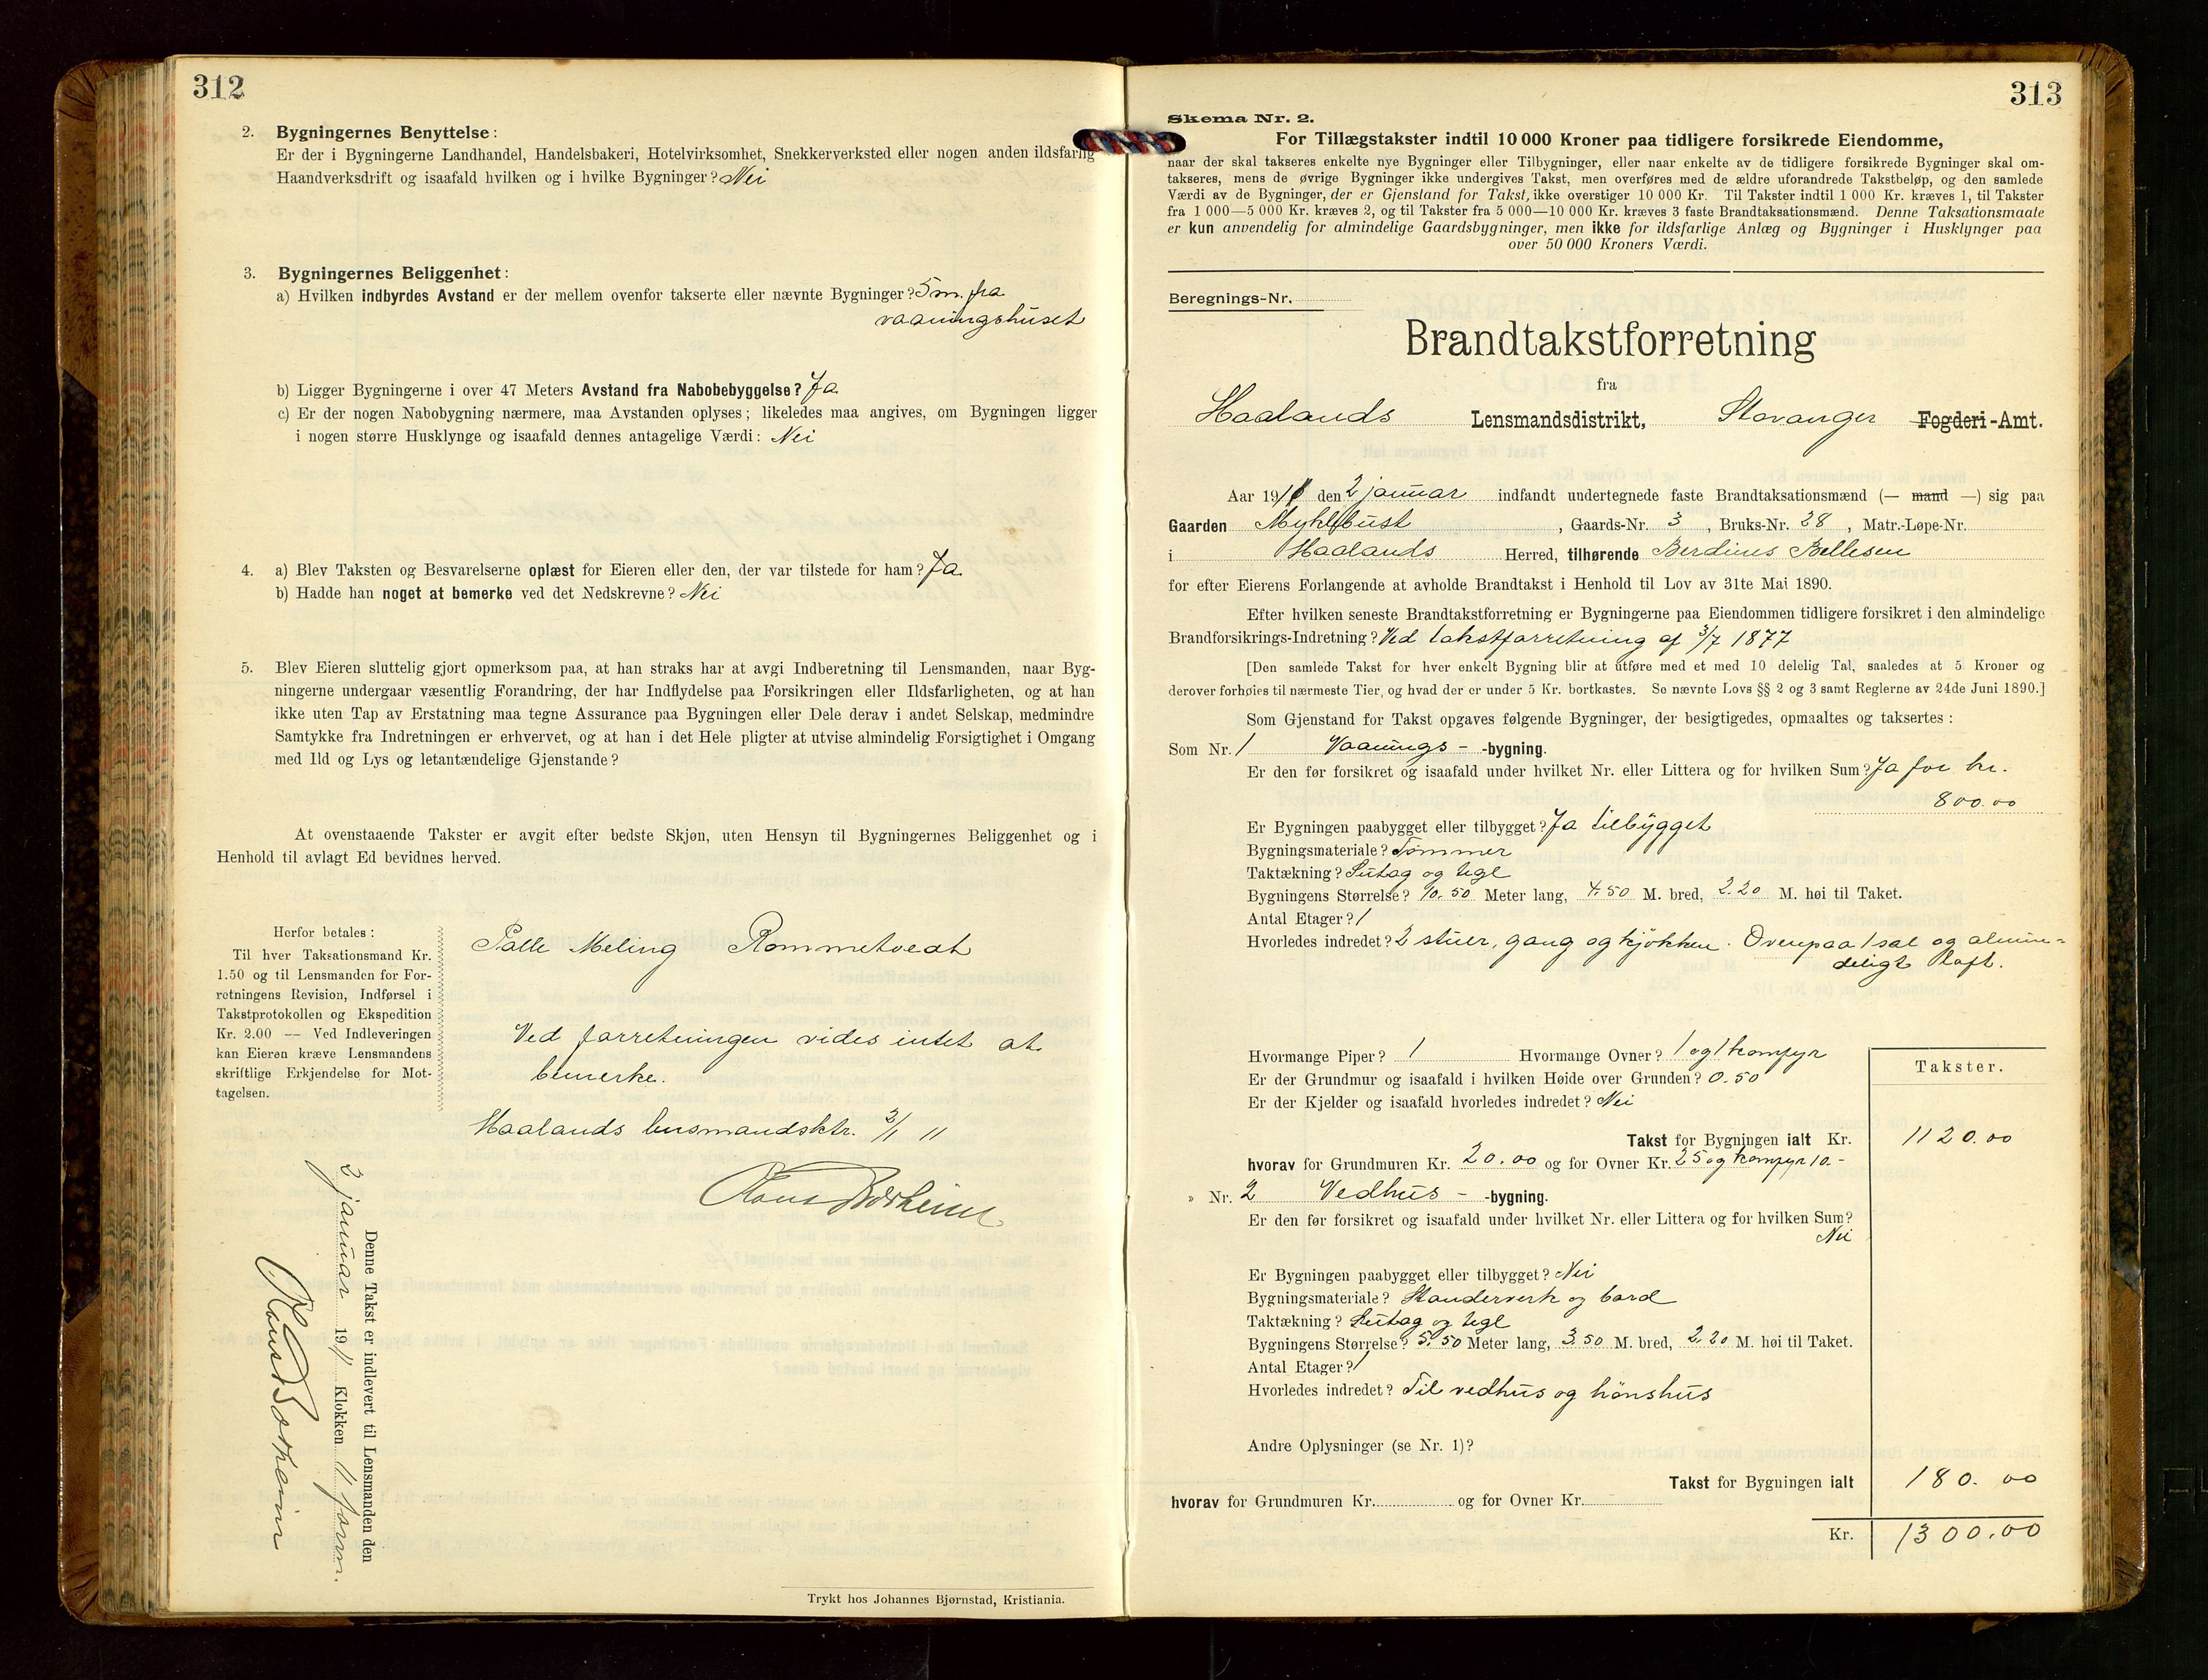 312
2. Bygningernes Benyttelse:
Er der i Bygningerne Landhandel, Handelsbakeri, Hotelvirksomhet, Snekkerverksted eller nogen anden ildsfarlig
Haandverksdrift og isaafald hvilken og i hvilke Bygninger? Nei
3. Bygningernes Beliggenhet:
a) Hvilken indbyrdes Avstand er der mellem ovenfor takserte eller nævnte Bygninger? 5 m. fra
vaaningshuset
b) Ligger Bygningerne i over 47 Meters Avstand fra Nabobebyggelse? Ja
c) Er der nogen Nabobygning nærmere, maa Avstanden oplyses; likeledes maa angives, om Bygningen ligger
i nogen større Husklynge og isaafald dennes antagelige Værdi: Nei
4. a) Blev Taksten og Besvarelserne oplæst for Eieren eller den, der var tilstede for ham? Ja
b) Hadde han noget at bemerke ved det Nedskrevne? Nei
5. Blev Eieren sluttelig gjort opmerksom paa, at han straks har at avgi Indberetning til Lensmanden, naar Byg-
ningerne undergaar væsentlig Forandring, der har Indflydelse paa Forsikringen eller Ildsfarligheten, og at han
ikke uten Tap av Erstatning maa tegne Assurance paa Bygningen eller Dele derav i andet Selskap, medmindre
Samtykke fra Indretningen er erhvervet, og at han i det Hele pligter at utvise almindelig Forsigtighet i Omgang
med Ild og Lys og letantændelige Gjenstande?
At ovenstaaende Takster er avgit efter bedste Skjøn, uten Hensyn til Bygningernes Beliggenhet og i
Henhold til avlagt Ed bevidnes herved.
Herfor betales:
Til hver Taksationsmand Kr.
1.50 og til Lensmanden for For-
retningens Revision, Indførsel i
Takstprotokollen og Ekspedition
Kr. 2.00 — Ved Indleveringen
kan Eieren kræve Lensmandens
skriftlige Erkjendelse for Mot-
tagelsen.
Palle Meling Rommetvedt
Ved forretningen vides intet at
bemerke.
Haalands lensmandsktr. 3/1 11
Denne Takst er indlevert til Lensmanden den
3 januar 1911 Klokken 11 form.
Trykt hos Johannes Bjørnstad, Kristiania.
313
Skema Nr. 2.
For Tillægstakster indtil 10 000 Kroner paa tidligere forsikrede Eiendomme,
naar der skal takseres enkelte nye Bygninger eller Tilbygninger, eller naar enkelte av de tidligere forsikrede Bygninger skal om-
takseres, mens de øvrige Bygninger ikke undergives Takst, men overføres med de ældre uforandrede Takstbeløp, og den samlede
Værdi av de Bygninger, der er Gjenstand for Takst, ikke overstiger 10 000 Kr. Til Takster indtil 1 000 Kr. kræves 1, til Takster
fra 1 000—5 000 Kr. kræves 2, og til Takster fra 5 000—10 000 Kr. kræves 3 faste Brandtaksationsmænd. Denne Taksationsmaate
er kun anvendelig for almindelige Gaardsbygninger, men ikke for ildsfarlige Anlæg og Bygninger i Husklynger paa
over 50 000 Kroners Værdi.
Beregnings-Nr.
Brandtakstforretning
fra
Haalands Lensmandsdistrikt, Stavanger Fogderi-Amt.
Aar 1911 den 2 januar indfandt undertegnede faste Brandtaksationsmænd (— mand —) sig paa
Gaarden Myklebust, Gaards-Nr. 3, Bruks-Nr. 28, Matr.-Løpe-Nr.
i Haalands Herred, tilhørende Berdines Bellesen
for efter Eierens Forlangende at avholde Brandtakst i Henhold til Lov av 31te Mai 1890.
Efter hvilken seneste Brandtakstforretning er Bygningerne paa Eiendommen tidligere forsikret i den almindelige
Brandforsikrings-Indretning? Ved takstforretning af 3/7 1877
[Den samlede Takst for hver enkelt Bygning blir at utføre med et med 10 delelig Tal, saaledes at 5 Kroner og
derover forhøies til nærmeste Tier, og hvad der er under 5 Kr. bortkastes. Se nævnte Lovs §§ 2 og 3 samt Reglerne av 24de Juni 1890.]
Som Gjenstand for Takst opgaves følgende Bygninger, der besigtigedes, opmaaltes og taksertes:
Som Nr. 1 Vaanings- -bygning.
Er den før forsikret og isaafald under hvilket Nr. eller Littera og for hvilken Sum? Ja for kr.
800.00
Er Bygningen paabygget eller tilbygget? Ja tilbygget
Bygningsmateriale? Tømmer
Taktækning? Sutag og tegl
Bygningens Størrelse? 10.50 Meter lang, 4.50 M. bred, 2.20 M. høi til Taket.
Antal Etager? 1
Hvorledes indredet? 2 stuer, gang og kjøkken. Ovenpaa 1 sal og almin-
deligt loft.
Hvormange Piper? 1 Hvormange Ovner? 1 og 1 komfyr
Er der Grundmur og isaafald i hvilken Høide over Grunden? 0.50
Er der Kjelder og isaafald hvorledes indredet? Nei
Takster.
Takst for Bygningen ialt Kr. 1120.00
hvorav for Grundmuren Kr. 20.00 og for Ovner Kr. 25 og komfyr 10.-
» Nr. 2 Vedhus- -bygning.
Er den før forsikret og isaafald under hvilket Nr. eller Littera og for hvilken Sum?
Nei
Er Bygningen paabygget eller tilbygget? Nei
Bygningsmateriale? Standerverk og bord
Taktækning? Sutag og tegl
Bygningens Størrelse? 5.50 Meter lang, 3.50 M. bred, 2.20 M. høi til Taket.
Antal Etager? 1
Hvorledes indredet? Til vedhus og hønshus
Andre Oplysninger (se Nr. 1)?
Takst for Bygningen ialt 180.00
hvorav for Grundmuren Kr. og for Ovner Kr.
Kr. 1300.00